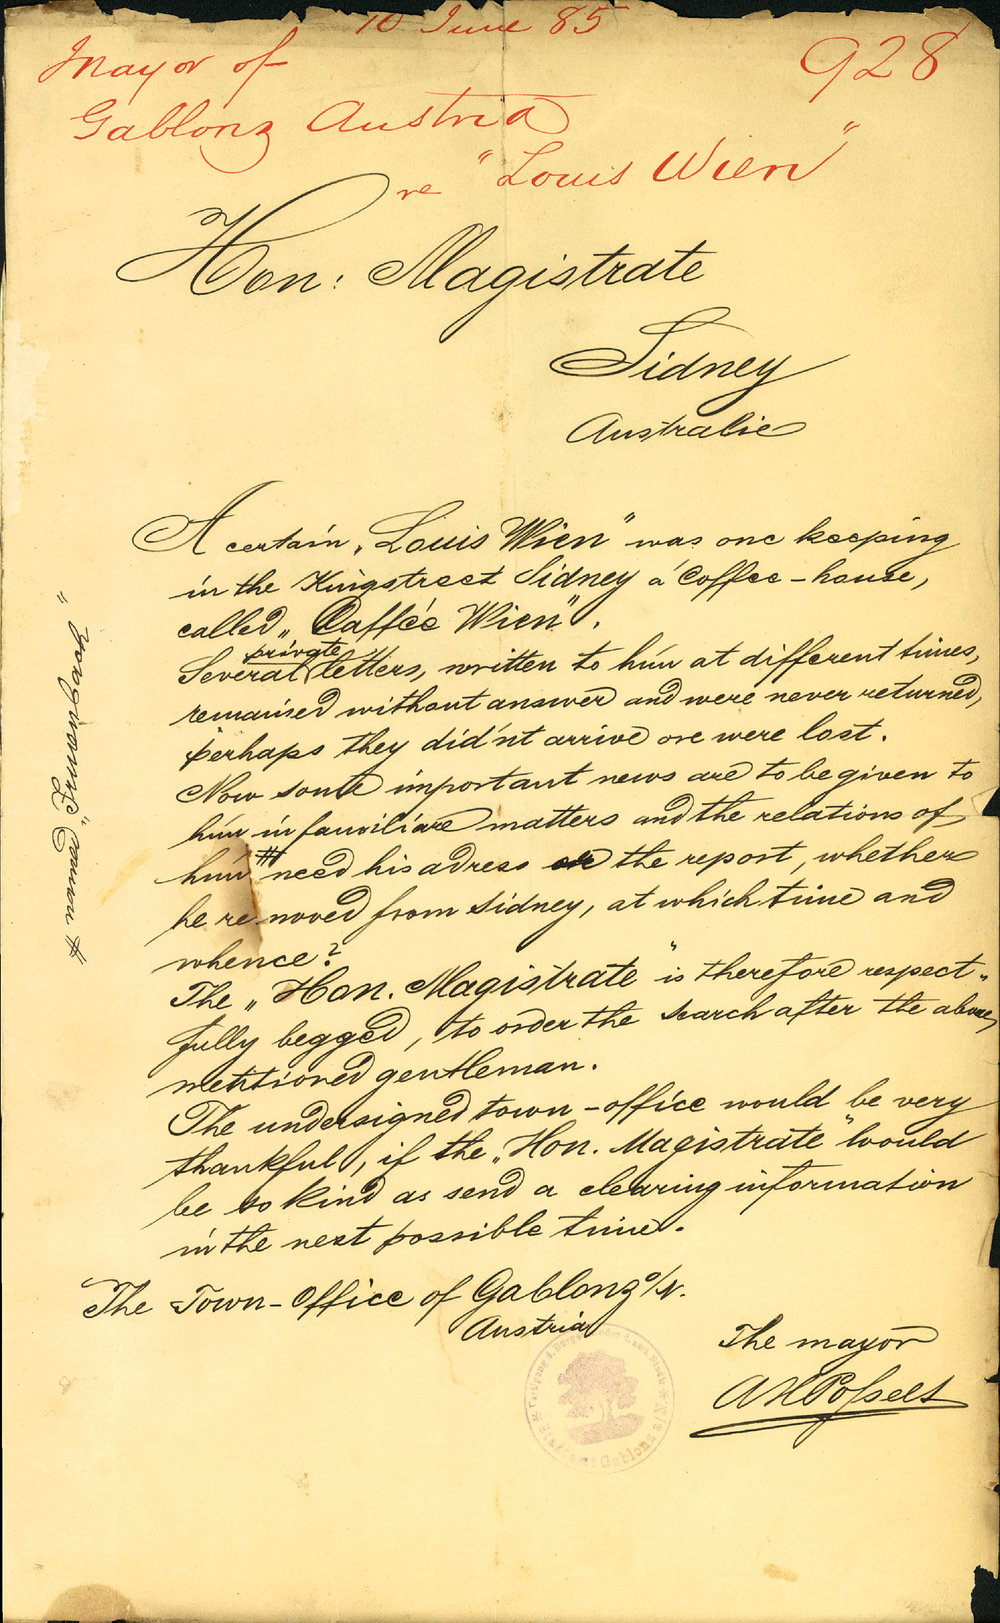 10 June 85
Mayor of
928
Gablonz Austria
re "Louis Wien"
Hon: Magistrate
Sidney
Australie
A certain „Louis Wien" was one keeping
in the Kingstreet Sidney a Coffee-house,
called „Caffée Wien".
private
Several letters, written to him at different times,
remained without answer and were never returned,
perhaps they did'nt arrive ore were lost.
Now some important news are to be given to
him in familiäre matters and the relations of
him # need his adress ore the report, whether
he removed from Sidney, at which time and
whence?
The „Hon. Magistrate" is therefore respect-
fully begged, to order the search after the above
mentioned gentleman.
The undersigned town-office would be very
thankful, if the „Hon. Magistrate" would
be so kind as send a clearing information
in the next possible time.
The Town-Office of Gablonz o/N.
Austria
The mayor
# named „
Gablonz